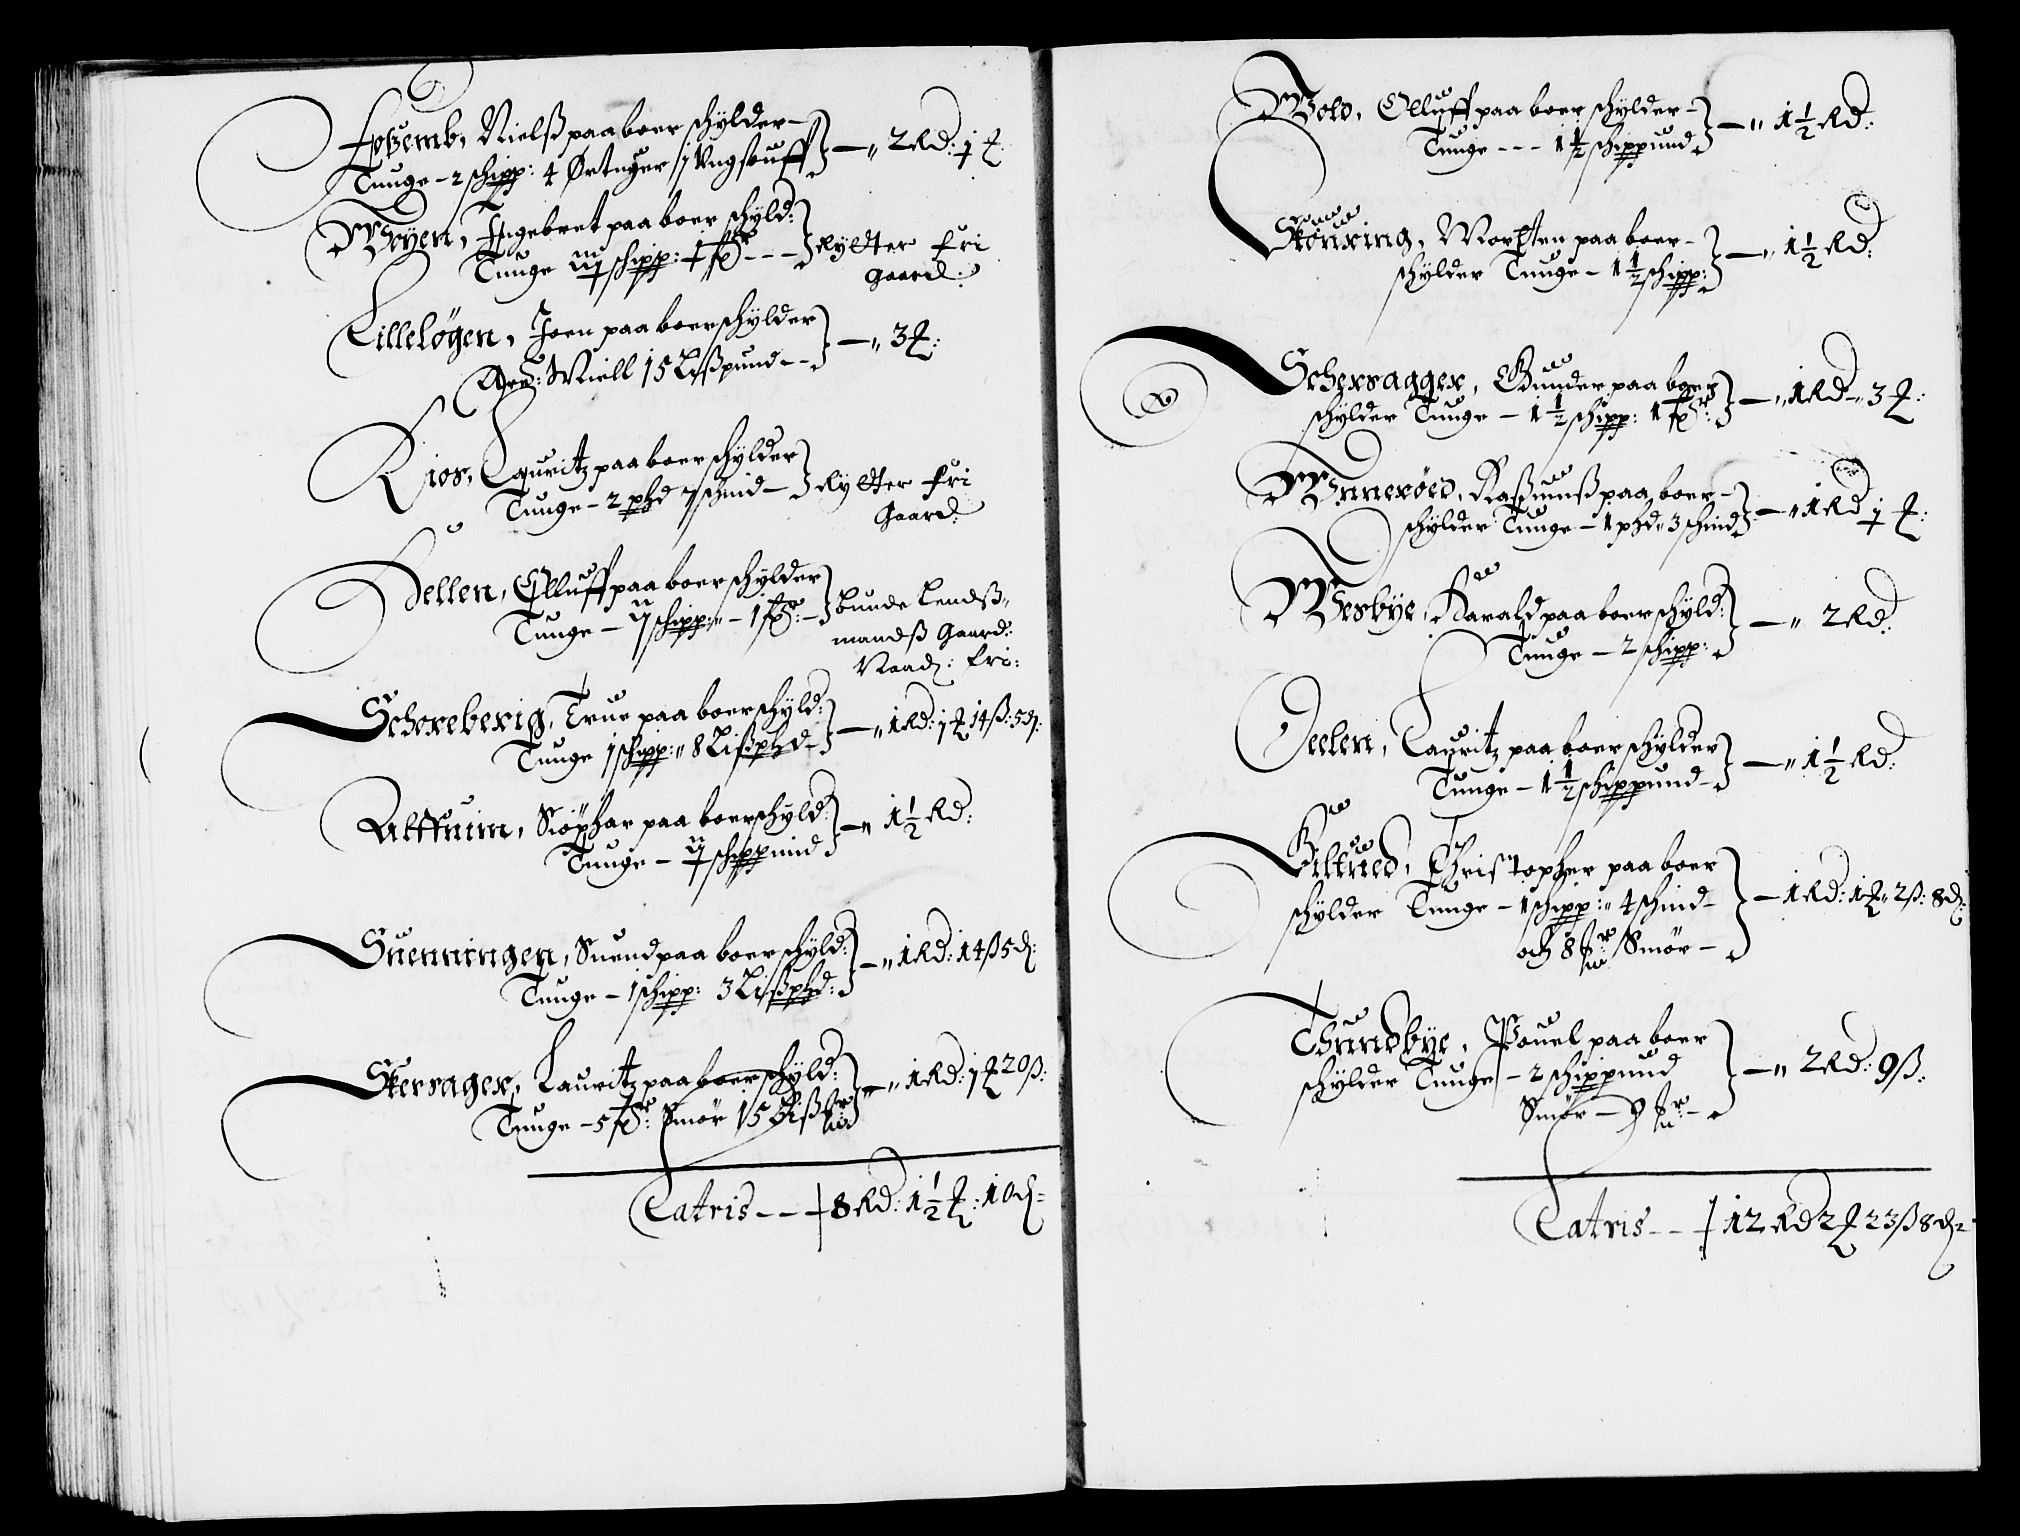 Nielß paa boer schylder –
Tunge – 2 schipp: 4 Ørtuger 1 Ungsouff – „ 2 Rd: 1
Woyen, Ingebret paa boer schyld:
Tunge schipp: - - - Rytter fri
gaard:
Lilleløgen, Joen paa boer schylder
Miell 15 Lißpund - - – „ 3
Kios, Lauritz paa boer schylder
Tunge – 2 phd 7 schind – Rytter fri
Gaard:
Dellen, Olluff paa boer schylder
Tunge – schipp: „ – 1 – bunde Lendß„
mandß Gaard:
fri:
Schoreberig, True paa boer schyld:
Tunge 1 schipp: „ 8 Lißphd – – „ 1 Rd: 1 14 ß: 5 d:
Alffuim, Siøphar paa boer schyld:
Tunge – schippund – „ 1½ Rd:
Suenningen, Suend paa boer schyld:
Tunge – 1 schipp: 3 Lißphd: – „ 1 Rd: 14 ß 5 d:
Skersager, Lauritz paa boer schyld:
Tunge – 5 Smør 15 – „ 1 Rd: 1 20 ß:
Latris - - 8 Rd: 1½ : 10 d
Wold, Olluff paa boer schylder –
Tunge - - - 1½ schippund – „ 1½ Rd:
Skønring, Morten paa boer –
schylder Tunge – 1½ schipp: – „ 1½ Rd:
Schersagger, Gunder paa boer
schylder Tunge – 1½ schipp: 1 – „ 1 Rd – 3
Wnnerøed, Raßmuß paa boer –
schylder Tunge – 1 phd „ 3 schind – „ 1 Rd 1
Wesbye, Harald paa boer schyld:
Tunge – 2 schipp: – „ 2 Rd:
Oeelen, Lauritz paa boer schylder
Tunge – 1½ schippund – – „ 1½ Rd:
Christopher paa boer
schylder Tunge – 1 schipp: „ 4 schind –
och 8 Smør – – 1 Rd: 1 „ 2 ß: 8 d:
Thundbye, Pouel paa boer
schylder Tunge – 2 schippund
Smør – 9 – – „ 2 Rd: 9 ß:
Latris - - 12 Rd 2 23 ß 8 d